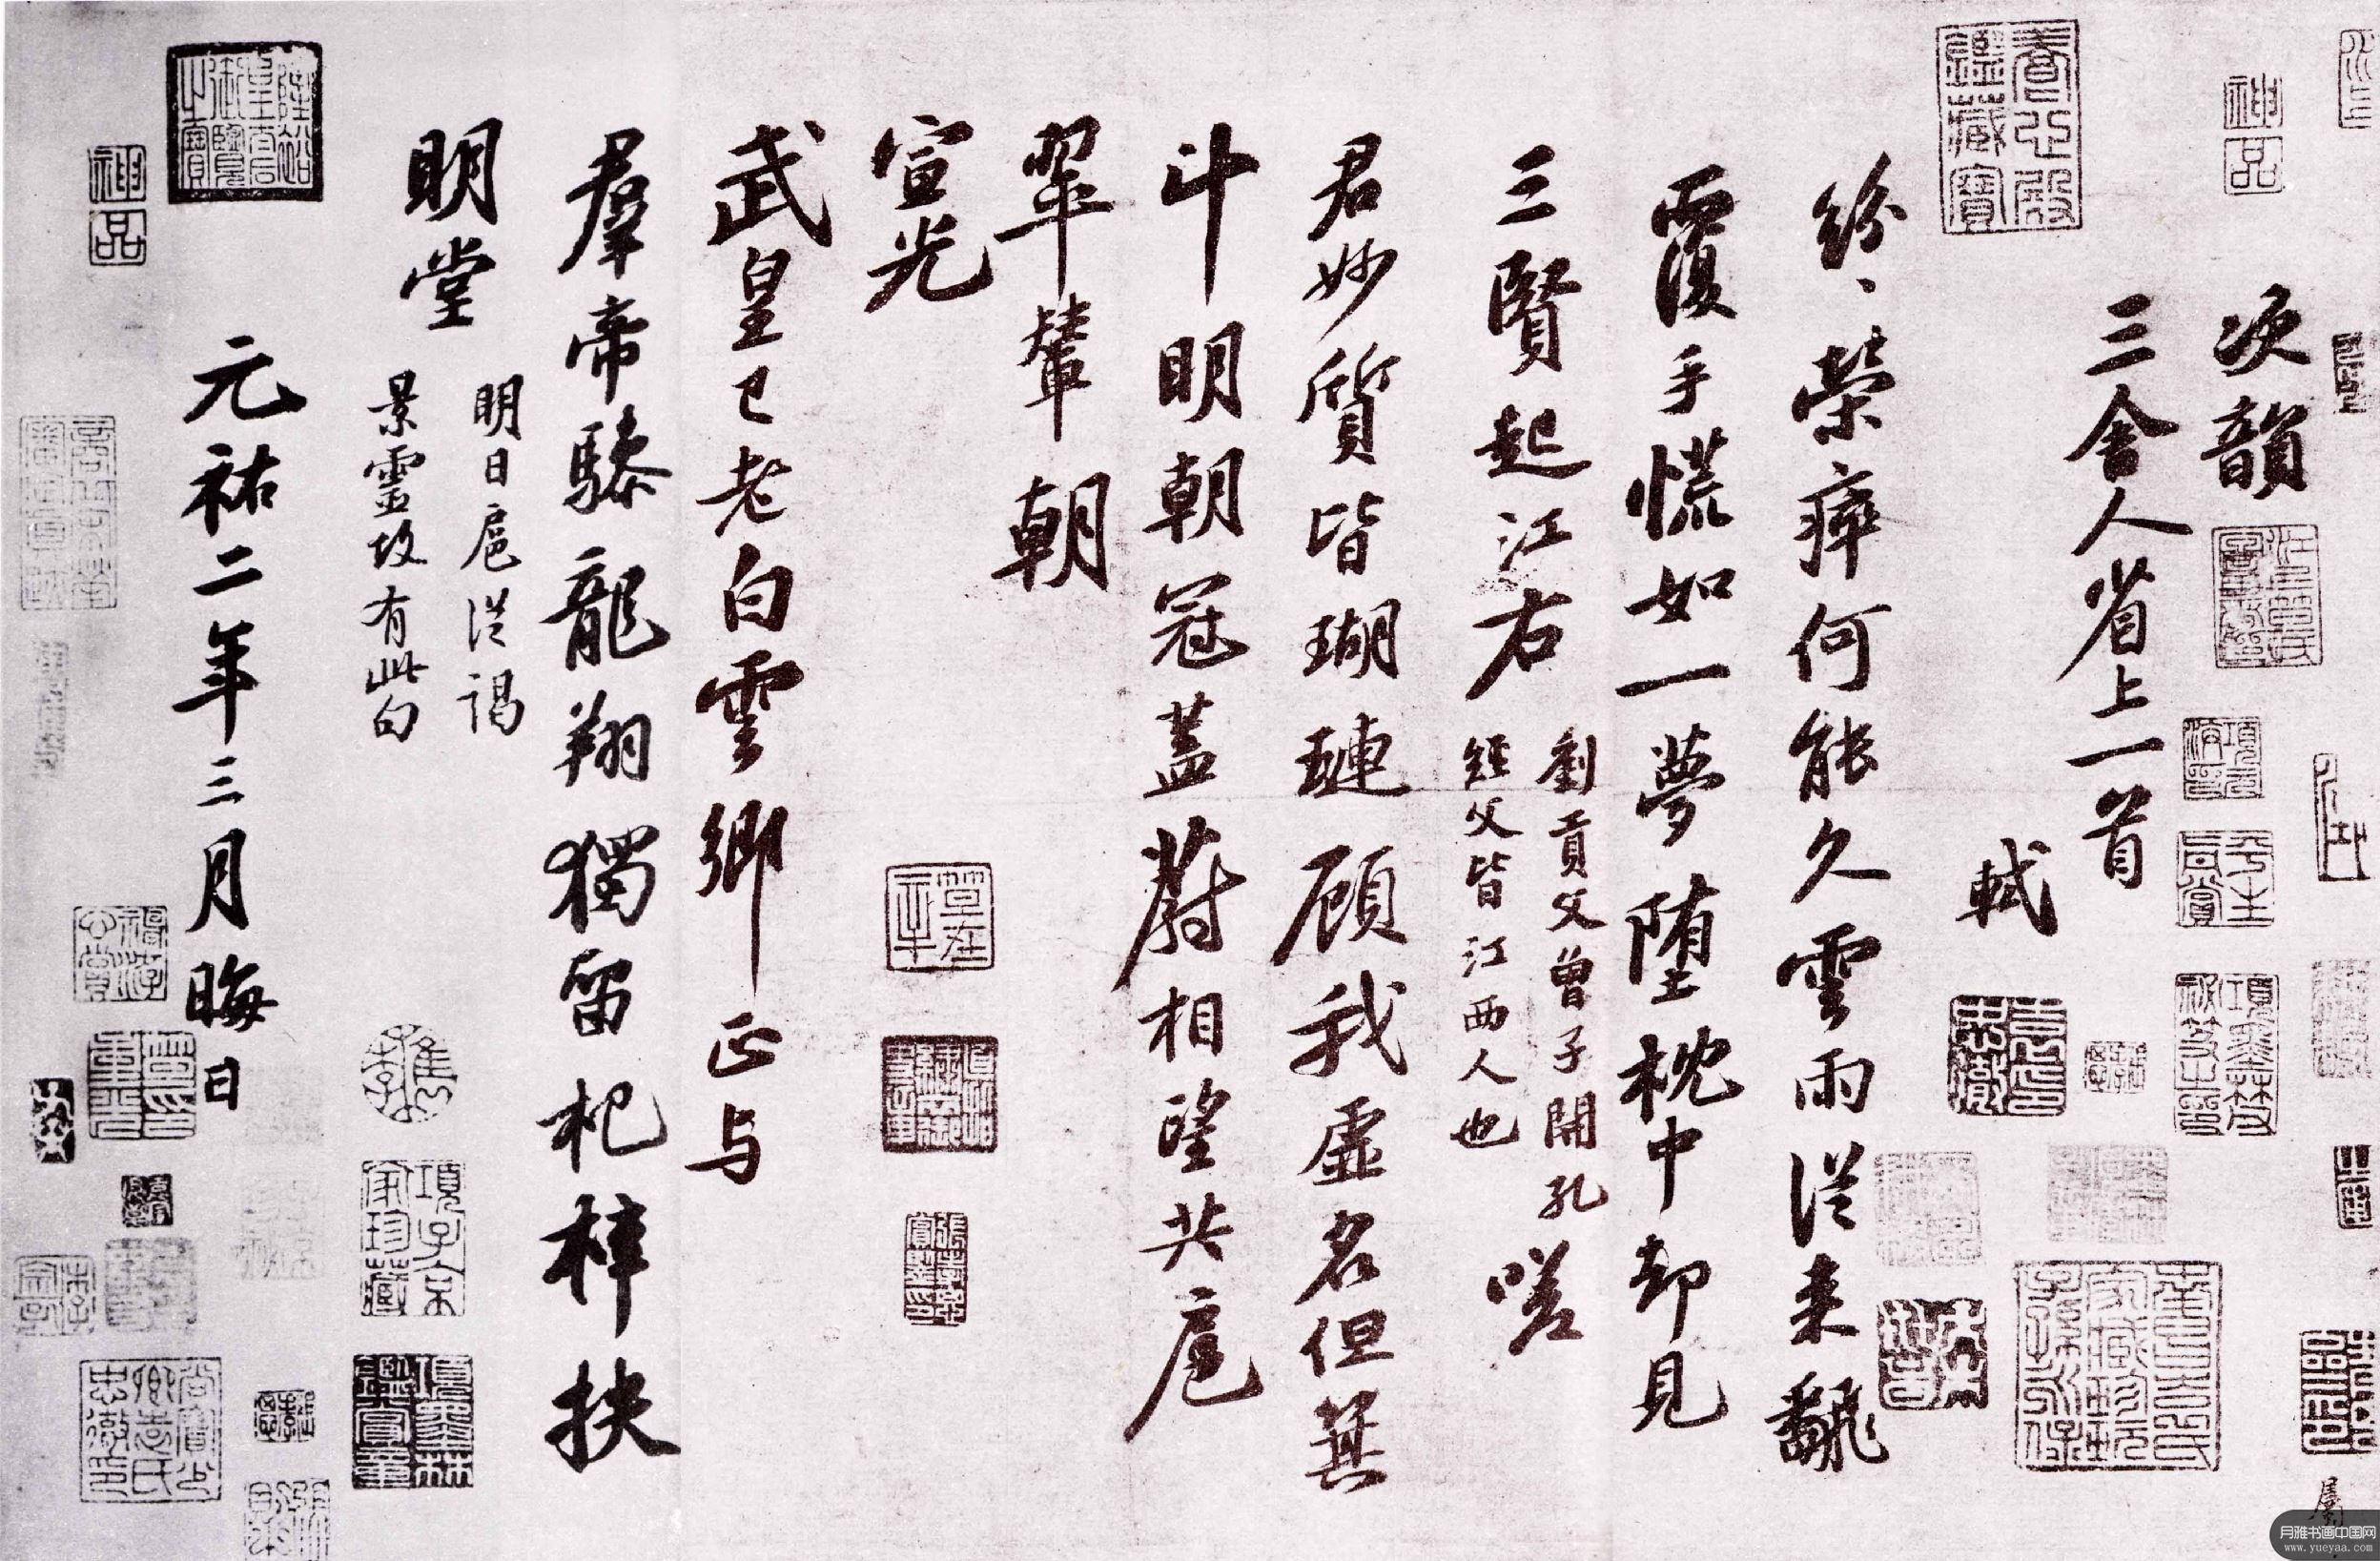 神品
次韻
三舍人省上一首
軾
紛〻榮瘁何能久雲雨從来飜
覆手慌如一夢堕枕中却見
三賢起江右
劉貢父曾子開孔
經父皆江西人也
嗟
君妙質皆瑚璉顧我虛名但箕
斗明朝冠蓋蔚相望共扈
翠輦朝
宣光
武皇已老白雲鄉正与
羣帝驂龍翔獨留杞梓扶
明堂
明日扈從謁
景靈故有此句
元祐二年三月晦日
隆裕皇后御覽之寶
神品
項子京家珍藏
項墨林鑑賞章
月雅书画中国网
www.yueyaa.com